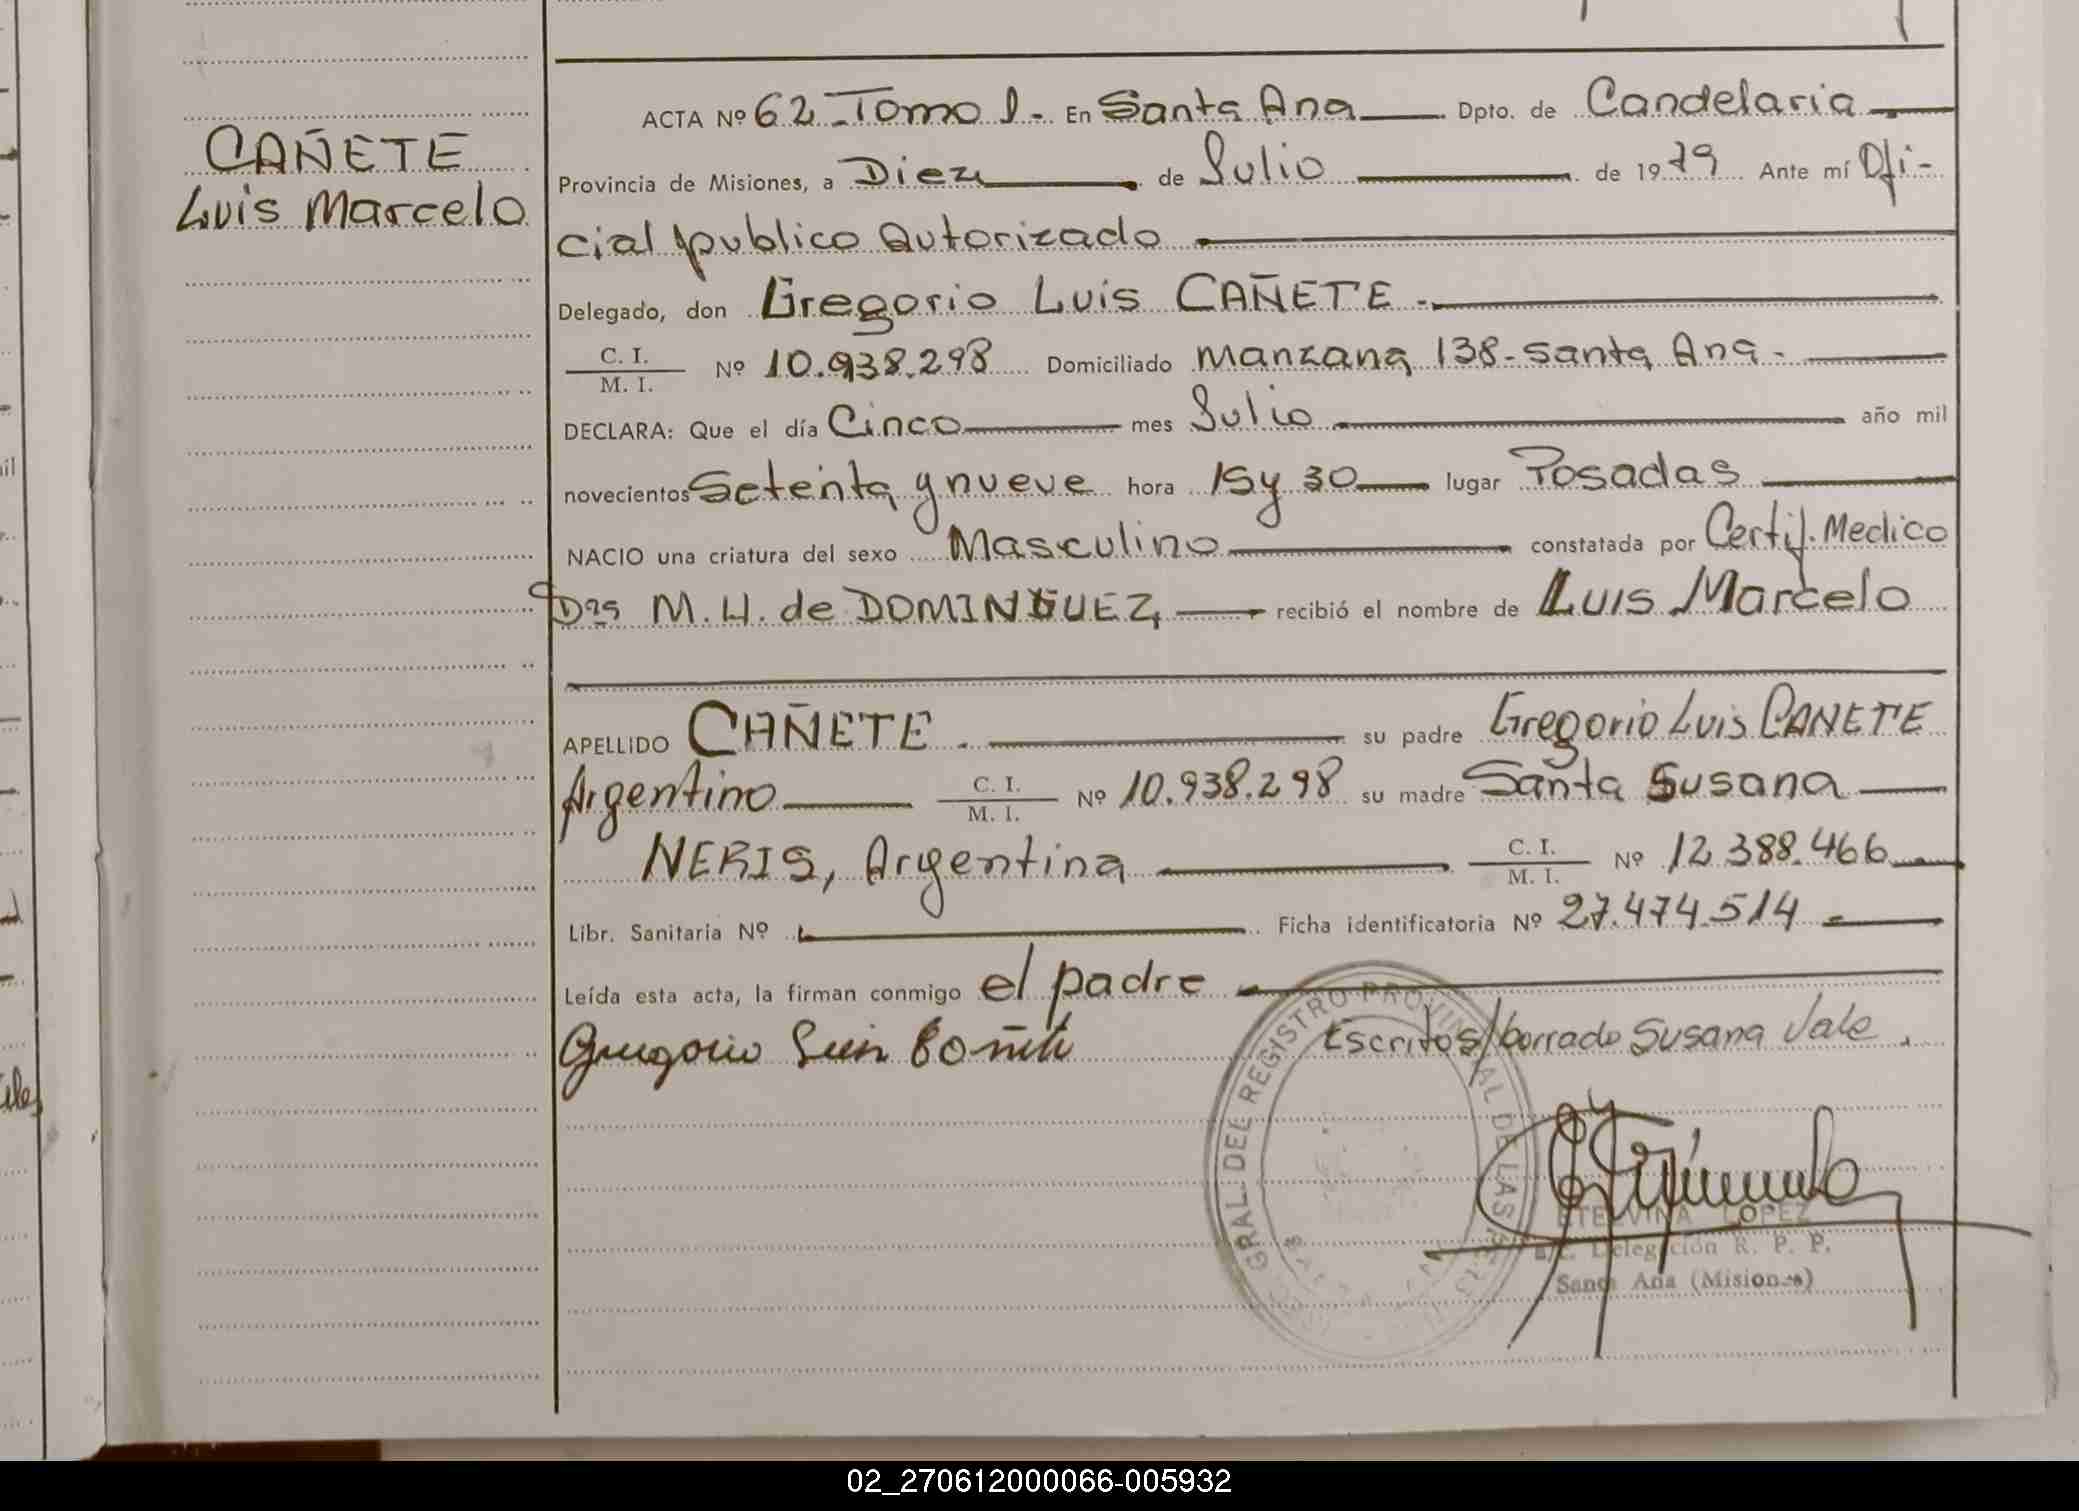 CAÑETE
Luis Marcelo
ACTA Nº 62 - Tomo I - En Santa Ana Dpto. de Candelaria
Provincia de Misiones, a Diez de Julio de 1979 Ante mí Ofi-
cial publico Autorizado
Delegado, don Gregorio Luis CAÑETE -
C. I. / M. I. Nº 10.938.298 Domiciliado Manzana 138 - Santa Ana -
DECLARA: Que el día Cinco mes Julio año mil
novecientos Setenta y nueve hora 15 y 30 lugar Posadas
NACIO una criatura del sexo Masculino constatada por Certif. Medico
Dra M. H. de DOMINGUEZ recibió el nombre de Luis Marcelo
APELLIDO CAÑETE - su padre Gregorio Luis CAÑETE
Argentino C. I. / M. I. Nº 10.938.298 su madre Santa Susana
NERIS, Argentina C. I. / M. I. Nº 12.388.466
Libr. Sanitaria Nº Ficha identificatoria Nº 27.474.514 -
Leída esta acta, la firman conmigo el padre
Gregorio Luis Cañete Escritos/borrado Susana Vale.
GRAL. DEL REGISTRO PROVINCIAL DE LAS
ETELVINA LOPEZ
Delegación R. P. P.
Santa Ana (Misiones)
02_270612000066-005932